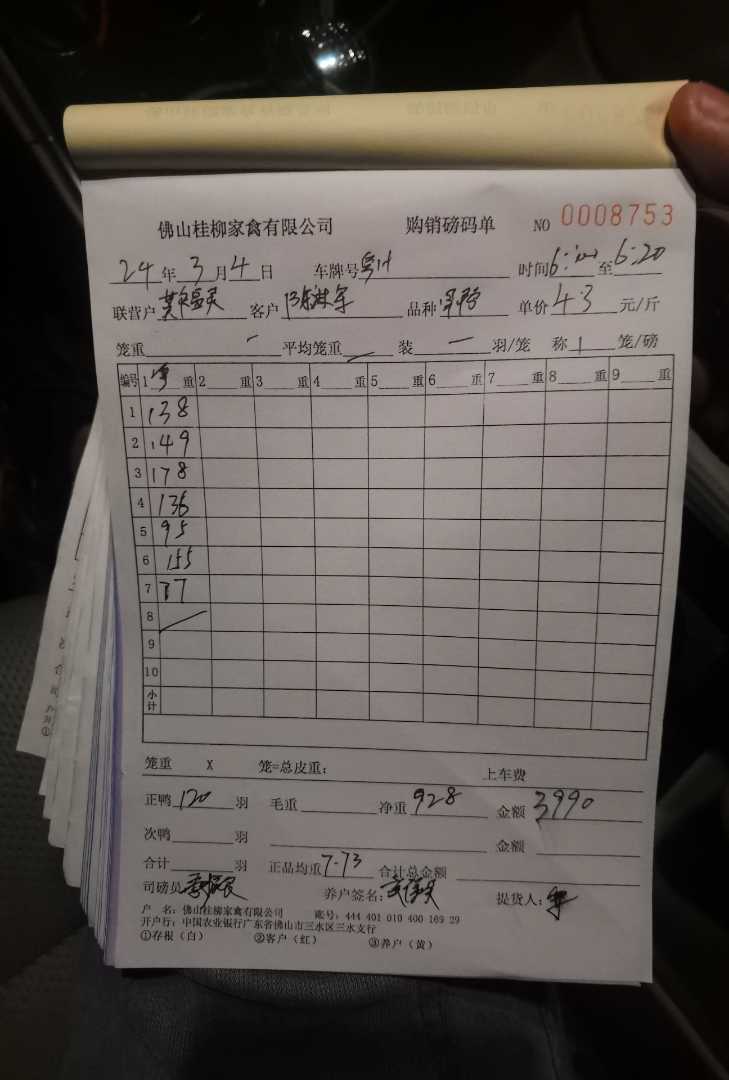 佛山桂柳家禽有限公司 购销磅码单 NO 0008753
24 年 3 月 4 日 车牌号 时间 6:00 至 6:20
联营户 客户 品种 单价 4.3 元/斤
笼重 平均笼重 装 羽/笼 称 1 笼/磅
编号 1 净 重 2 重 3 重 4 重 5 重 6 重 7 重 8 重 9 重
1 138
2 149
3 178
4 136
5 95
6 155
7 77
8
9
10
小计
笼重 X 笼=总皮重: 上车费
正鸭 120 羽 毛重 净重 928 金额 3990
次鸭 羽 金额
合计 羽 正品均重 7.73 合计总金额
司磅员 养户签名: 提货人:
户 名: 佛山桂柳家禽有限公司 账号: 444 401 010 400 169 29
开户行: 中国农业银行广东省佛山市三水区三水支行
①存根(白) ②客户(红) ③养户(黄)